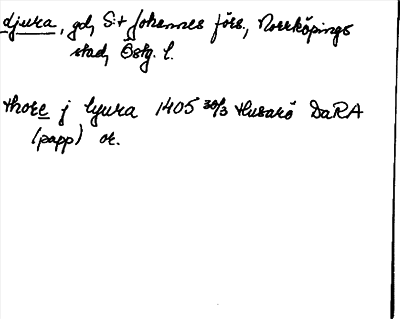 djura, gd, S:t Johannes förs., Norrköpings
stad, Östg. l.
thore j lyura 1405 30/3 Husarö DaRA
(papp) or.